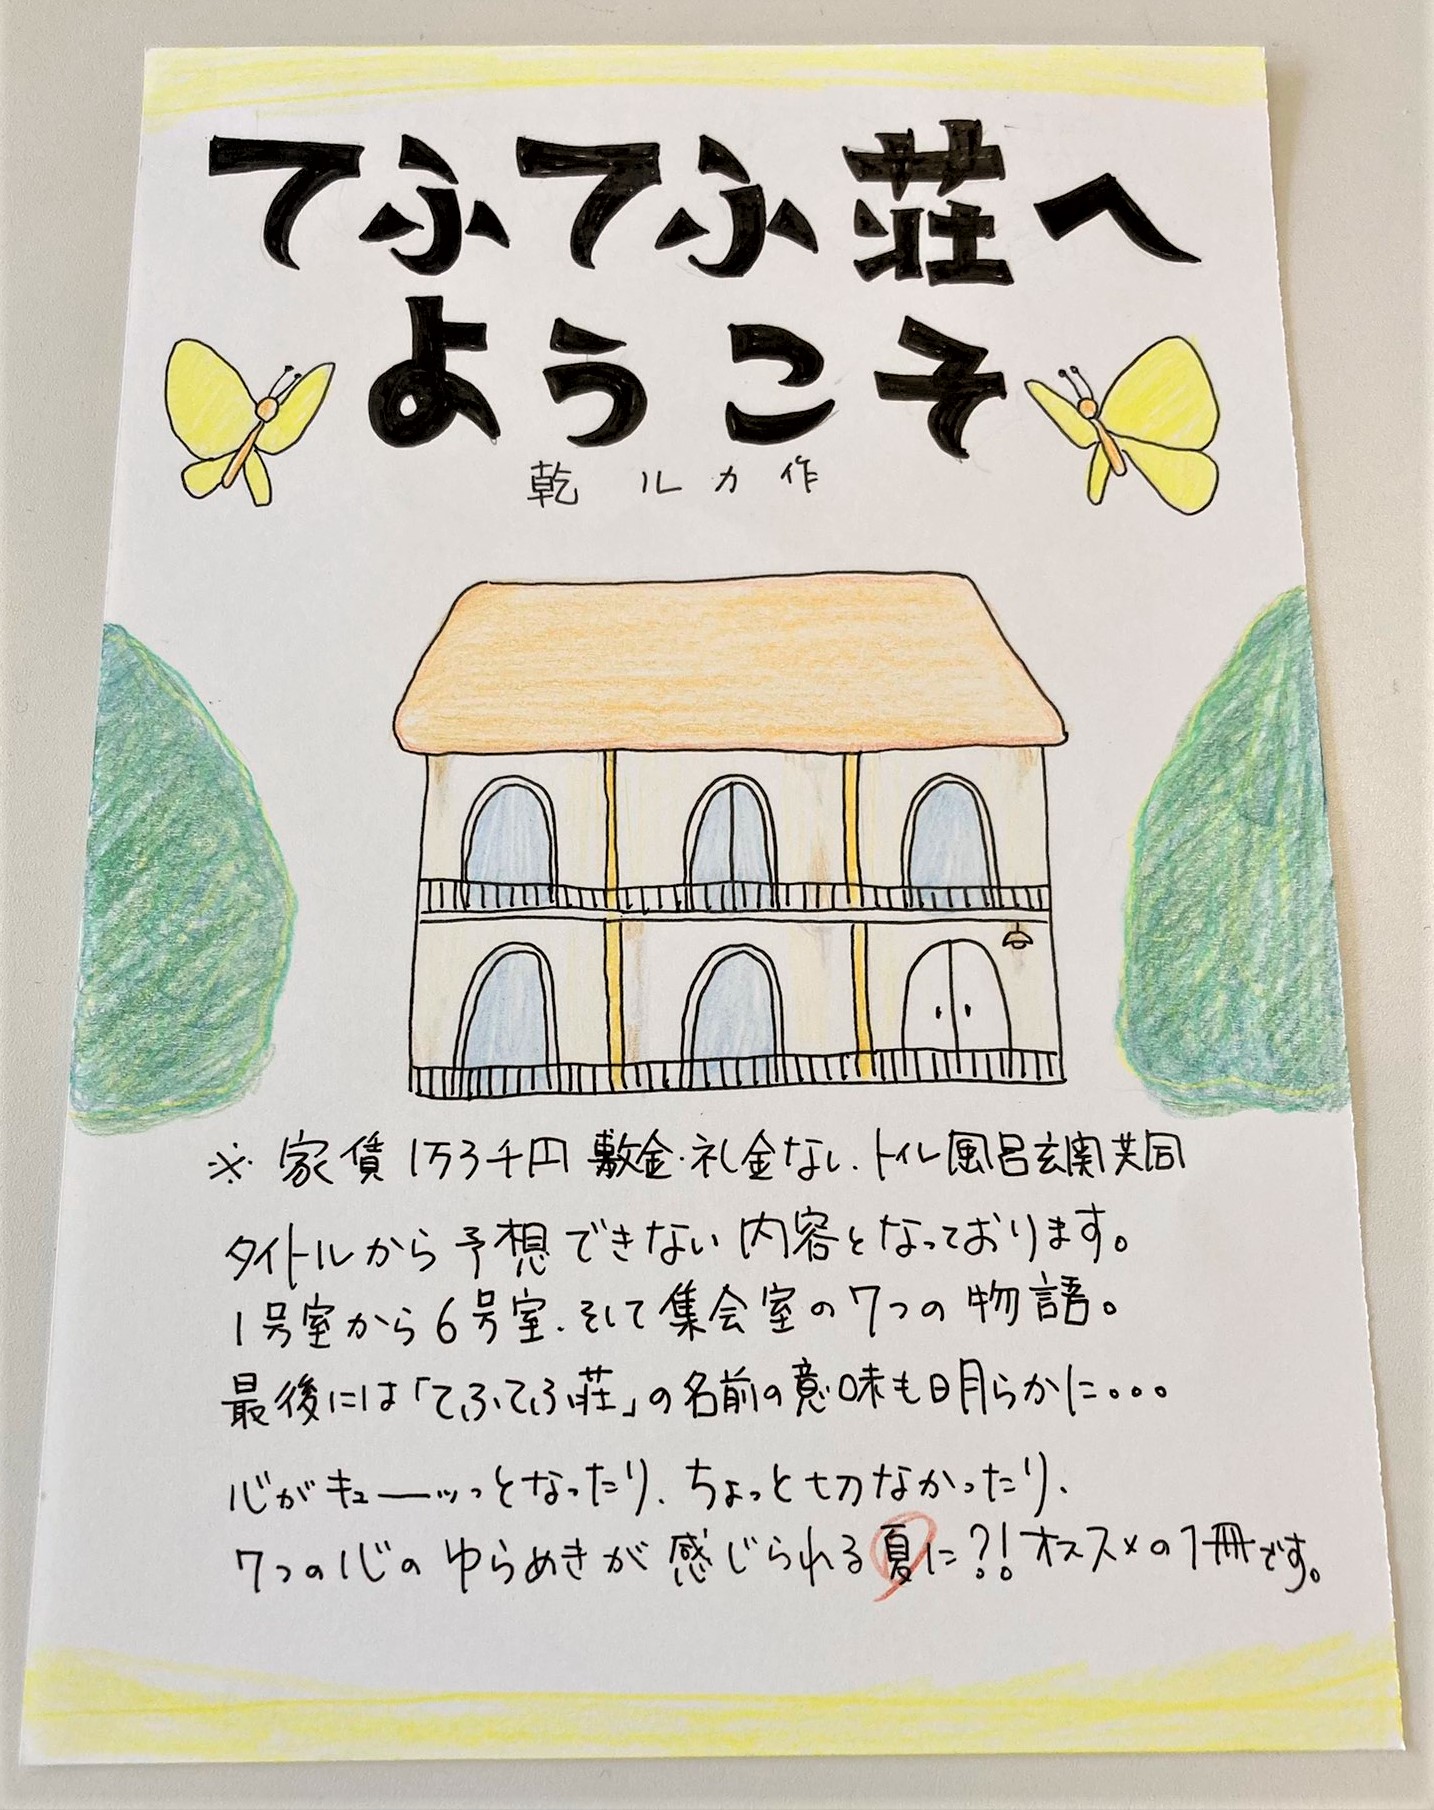 てふてふ荘へ
ようこそ
乾 ルカ 作
※ 家賃 1万3千円 敷金・礼金なし、トイレ風呂玄関共同
タイトルから予想できない内容となっております。
1号室から6号室、そして集会室の7つの物語。
最後には「てふてふ荘」の名前の意味も明らかに...
心がキューーッっとなったり、ちょっと切なかったり、
7つの心のゆらめきが感じられる夏に?!オススメの1冊です。